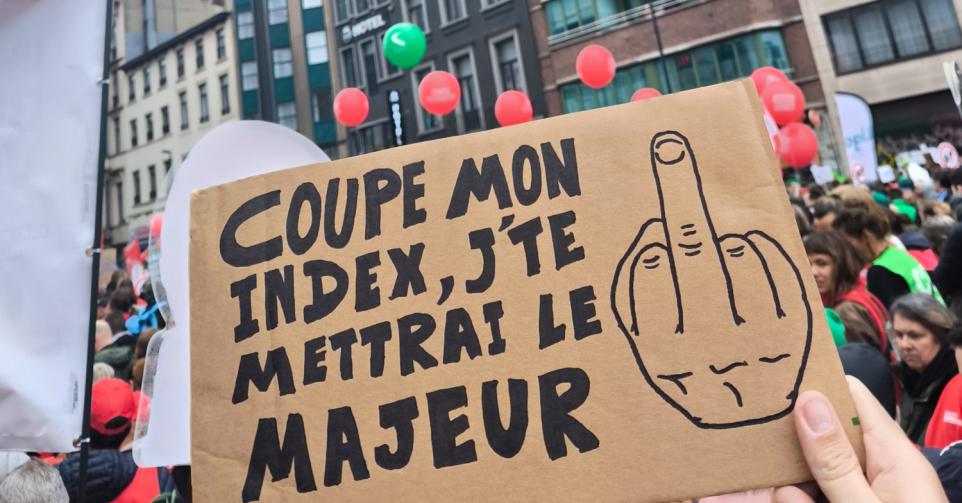 HOTEL
COUPE MON
INDEX, J'TE
METTRAI LE
MAJEUR